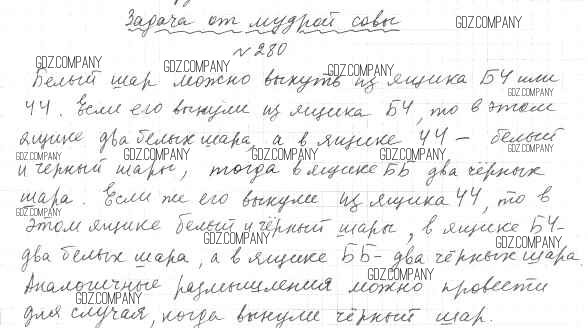 Задача от мудрой совы
GDZ.COMPANY
№ 280
GDZ.COMPANY
GDZ.COMPANY
GDZ.COMPANY
Белый шар можно вынуть из ящика БЧ или
GDZ.COMPANY
ЧЧ. Если его вынули из ящика БЧ, то в этом
ящике два белых шара, а в ящике ЧЧ – белый
GDZ.COMPANY
GDZ.COMPANY
GDZ.COMPANY
GDZ.COMPANY
GDZ.COMPANY
и чёрный шары, тогда в ящике ББ два чёрных
шара. Если же его вынули из ящика ЧЧ, то в
GDZ.COMPANY
этом ящике белый и чёрный шары, в ящике БЧ-
GDZ.COMPANY
GDZ.COMPANY
два белых шара, а в ящике ББ- два чёрных шара.
GDZ.COMPANY
Аналогичные размышления можно провести
GDZ.COMPANY
для случая, когда вынули чёрный шар.